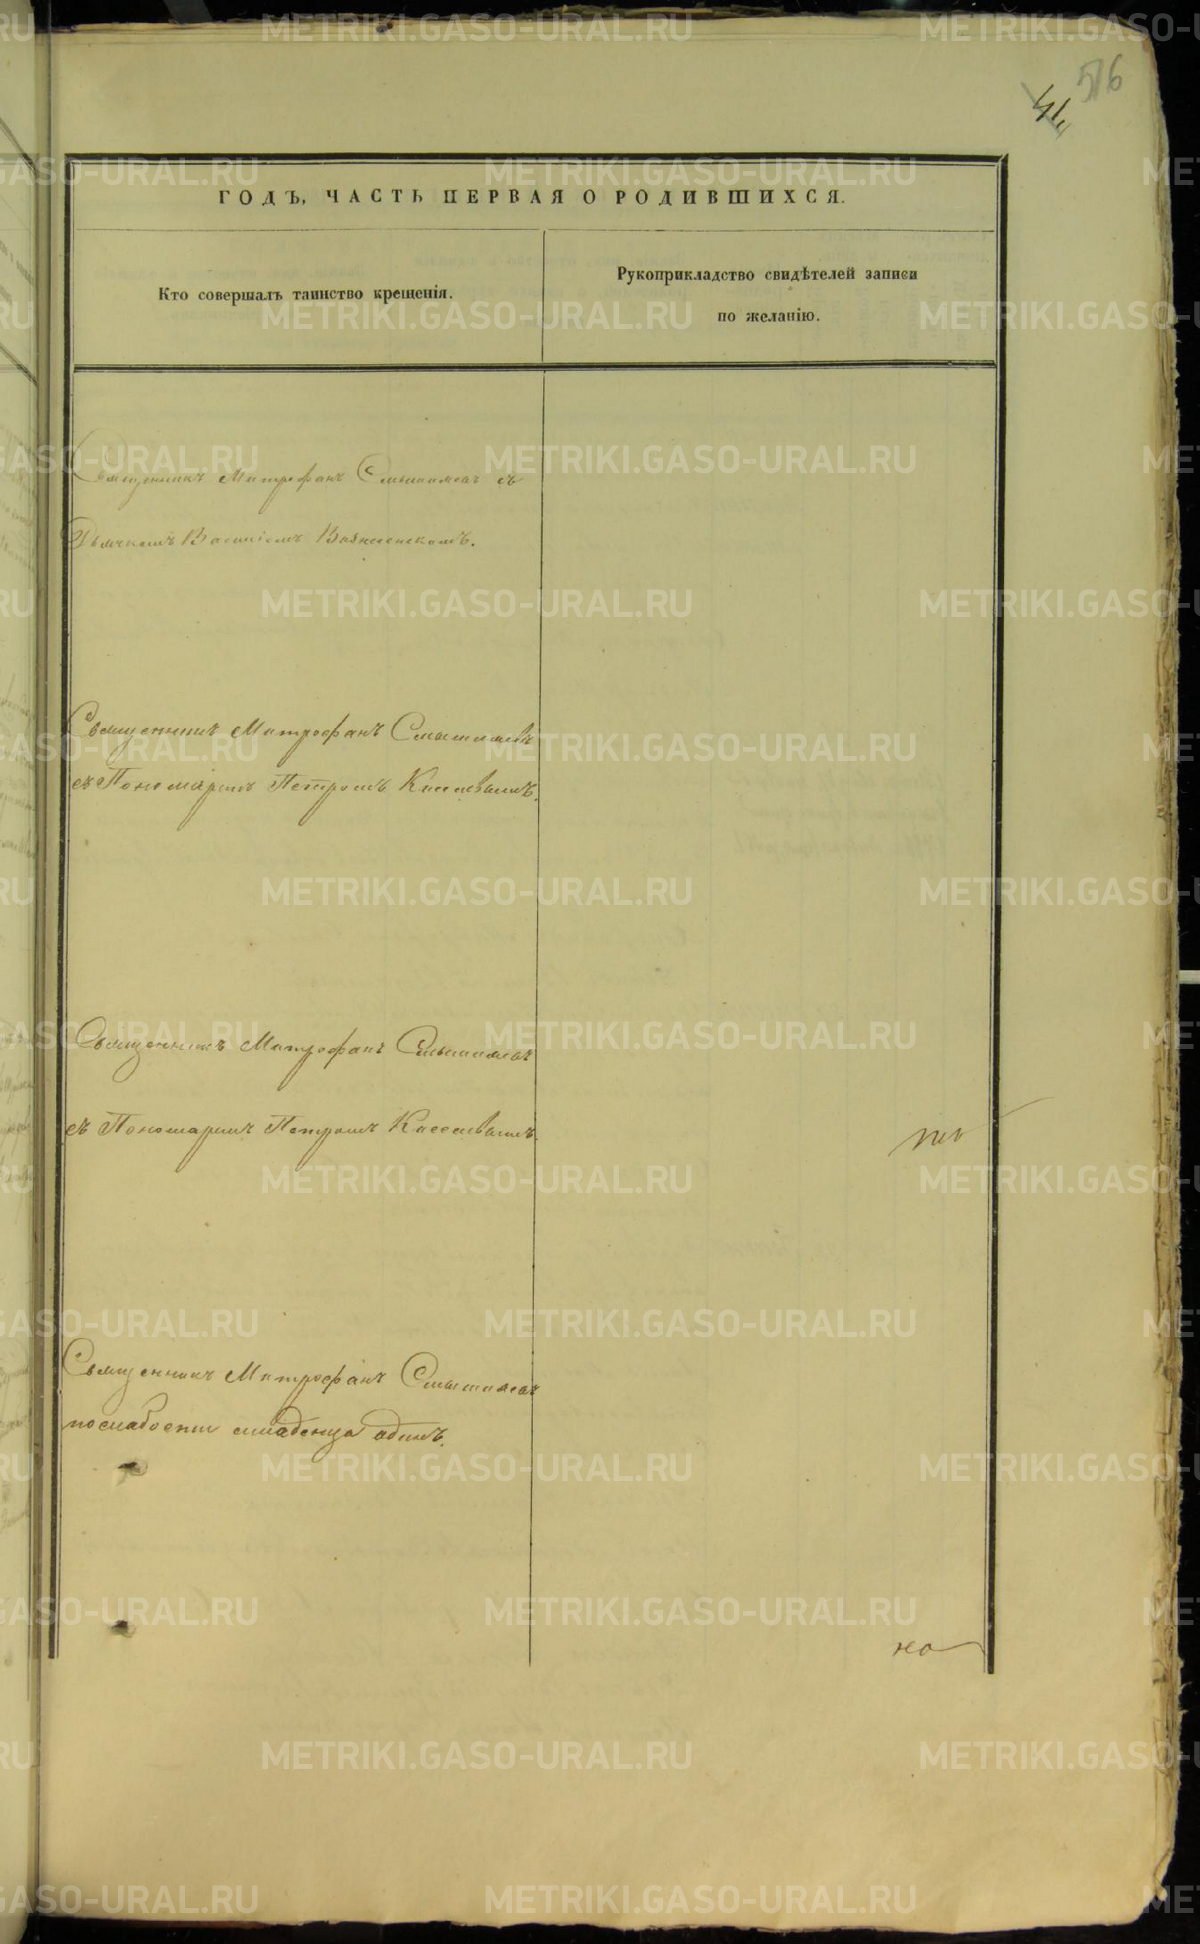 516
ГОДЪ, ЧАСТЬ ПЕРВАЯ О РОДИВШИХСЯ.
Кто совершалъ таинство крещенія.
Рукоприкладство свидѣтелей записи
по желанію.
Священникъ Митрофанъ съ
Дьячкомъ Василіемъ Вознесенскомъ.
Священникъ Митрофанъ
съ Пономаремъ Петромъ
Священникъ Митрофанъ
съ Пономаремъ Петромъ
Священникъ Митрофанъ
по слабости младенца одинъ.
но
METRIKI.GASO-URAL.RU